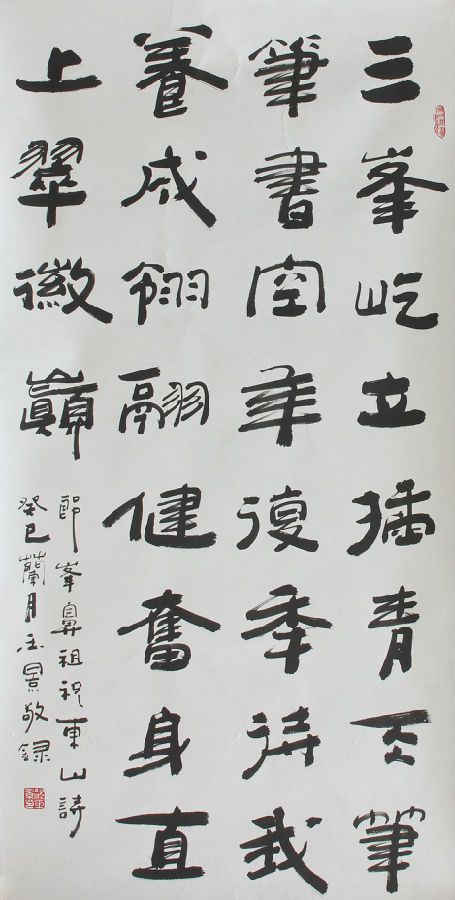 三峯屹立插青天筆
筆書空年復年待我
養成翎翮健奮身直
上翠微巔
郎峯鼻祖祝東山詩
癸巳蘭月景敬録